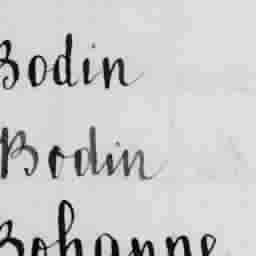 Bodin
Bodin
Bohanne